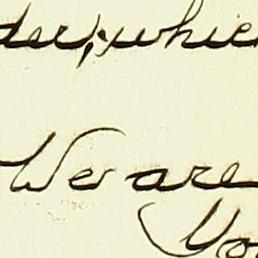 der, which
We are
Yo